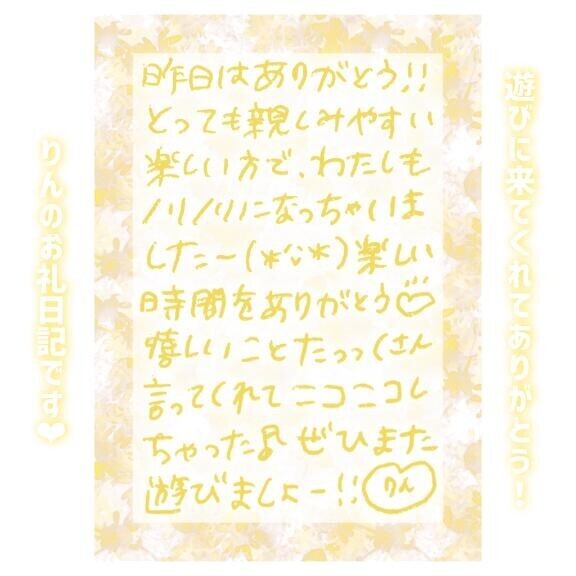 遊びに来てくれてありがとう！
昨日はありがとう!!
とっても親しみやすい
楽しい方で、わたしも
ノリノリになっちゃいま
した〜(*ˊᵕˋ*)楽しい
時間をありがとう♡
嬉しいことたっっくさん
言ってくれてニコニコし
ちゃった♪ぜひまた
遊びましょー!!りん
りんのお礼日記です❤